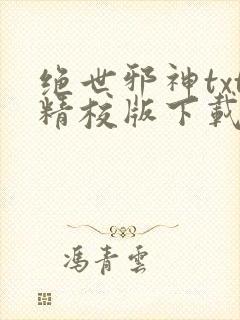 绝世邪神txt
精校版下载
冯青雲